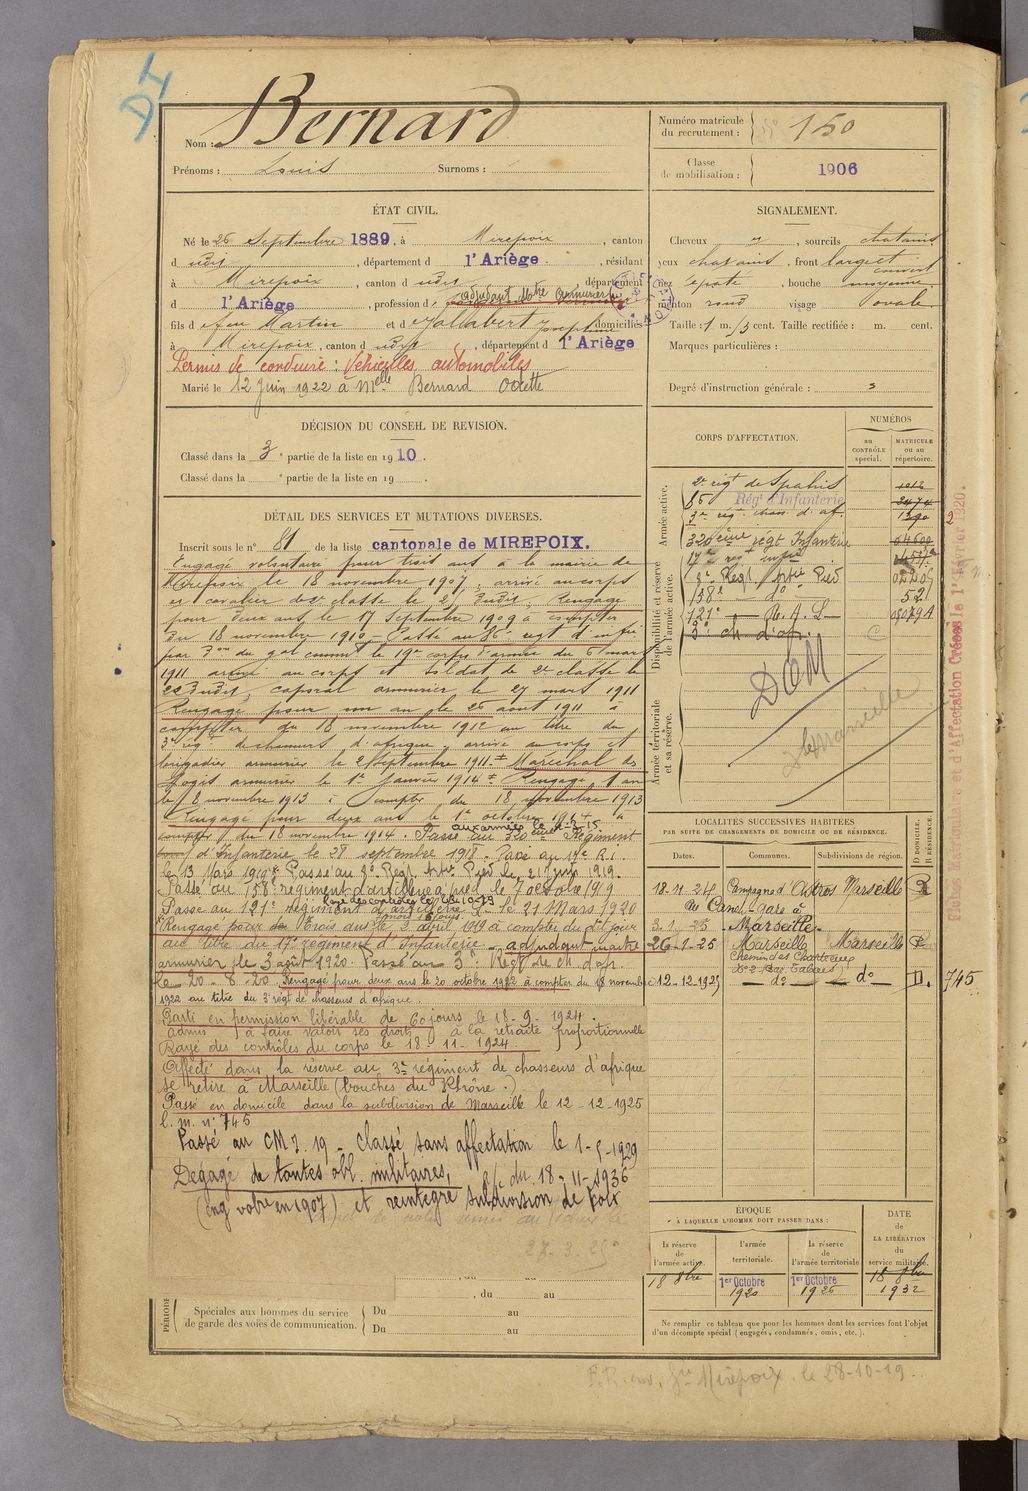 DI
Bernard
Nom :
Prénoms : Louis Surnoms :
Numéro matricule du recrutement : 150
Classe de mobilisation : 1906
ÉTAT CIVIL.
Né le 26 Septembre 1889, à Mirepoix, canton
d udit, département d l'Ariège, résidant
à Mirepoix, canton d udit, département
d l'Ariège, profession d adjudant Mtre armurier
fils d e feu Martin et d e Jallabert Josephine domiciliés
à Mirepoix, canton d udit, département d l'Ariège
Permis de conduire : Véhicules automobiles
Marié le 12 Juin 1922 à Melle Bernard Odette
SIGNALEMENT.
Cheveux , sourcils chatains
yeux chatains, front large et couvert
nez épaté, bouche moyenne
menton rond visage ovale
Taille : 1 m. cent. Taille rectifiée : m. cent.
Marques particulières :
Degré d'instruction générale : 3
DÉCISION DU CONSEIL DE REVISION.
Classé dans la 3e partie de la liste en 1910.
Classé dans la e partie de la liste en 19 .
DÉTAIL DES SERVICES ET MUTATIONS DIVERSES.
Inscrit sous le n° 81 de la liste cantonale de MIREPOIX.
Engagé volontaire pour trois ans à la mairie de
Mirepoix le 18 novembre 1907, arrivé au corps
et cavalier de 2e classe le 21 dudit, Rengagé
pour deux ans le 17 Septembre 1909 à compter
du 18 novembre 1910. Passé au 86e regt d'infie
par Don du gal commt le 19e corps d'armée du 6 mars
1911 arrivé au corps et soldat de 2e classe le
22 dudit, caporal armurier le 27 mars 1911
Rengagé pour un an le 26 aout 1911 à
compter du 18 novembre 1912 au titre du
3e régt de chasseurs d'afrique arrivé au corps et
brigadier armurier le 2 Septembre 1911 Maréchal des
Logis armurier le 1er Janvier 1914 Rengagé 1 an
le 8 novembre 1913 à compter du 18 novembre 1913
Rengagé pour deux ans le 1er octobre 1914 à
compter du 18 novembre 1914. Passé au 320eme Régiment
aux armées le
d'Infanterie le 28 septembre 1918. Passé au 17e R.I.
le 13 Mars 1919 Passé au 8e Regt Artie Pied le 21 Juin 1919.
Passé au 158e régiment d'artillerie à pied le 7 octobre 1919
Rayé des contrôles le
Passé au 121e régiment d'artillerie L. le 21 Mars 1920
Rengagé pour trois ans le 3 avril 1919 à compter du dit jour
au titre du 17e régiment d'Infanterie - adjudant maitre
armurier le 3 août 1920. Passé au 3e Régt de ch d'afr.
le 20-8-20. Rengagé pour deux ans le 20 octobre 1922 à compter du 18 novembre
1922 au titre du 3e régt de chasseurs d'afrique.
Parti en permission libérable de 60 jours le 18-9-1924.
admis à faire valoir ses droits à la retraite proportionnelle
Rayé des contrôles du corps le 18-11-1924
Affecté dans la réserve au 3e régiment de chasseurs d'afrique
se retire à Marseille (bouches du Rhône.)
Passé en domicile dans la subdivision de Marseille le 12-12-1925
l. m. n° 745
Passé au CM I. 19 - Classé sans affectation le 1-5-1929
Dégagé de toutes obl. militaires, du 18-11-1936
(eng volre en 1907) et réintégré Subdivision de Foix
27.3.25
CORPS D'AFFECTATION.
NUMÉROS
au CONTRÔLE spécial.
MATRICULE ou au répertoire.
Armée active.
2e régt de Spahis 1212
86 Régt d'Infanterie 2474
3e régt chass. d'af. 1390 2
Disponibilité et réserve de l'armée active.
320eme régt Infanterie 04600
17e régt infie
8e Regt Artie Pied
158e - do - 52
121e - R. A. L - 05079A
3e ch d'afr.
Armée territoriale et sa réserve.
DOM
Marseille
Fiches Matriculaire et d'Affectation Créées le 1er Février 1920.
LOCALITÉS SUCCESSIVES HABITÉES
PAR SUITE DE CHANGEMENTS DE DOMICILE OU DE RÉSIDENCE.
Dates. Communes. Subdivisions de région. D DOMICILE. R RÉSIDENCE.
18-11-24 Campagne d'Astros Marseille R
du Canet-gare à
3.1.25 - Marseille -
26-1-25 Marseille Marseille R
Chemin des Chartreux
12-12-1925 - do - - do - D. 745
ÉPOQUE
À LAQUELLE L'HOMME DOIT PASSER DANS :
la réserve de l'armée active. l'armée territoriale. la réserve de l'armée territoriale
DATE de LA LIBÉRATION du service militaire.
18 8bre 1er Octobre 1920 1er Octobre 1926 18 8bre 1932
, du au
PÉRIODE
Spéciales aux hommes du service de garde des voies de communication.
Du au
Du au
Ne remplir ce tableau que pour les hommes dont les services font l'objet
d'un décompte spécial (engagés, condamnés, omis, etc.).
F.R. env. Gie Mirepoix. le 28-10-19.